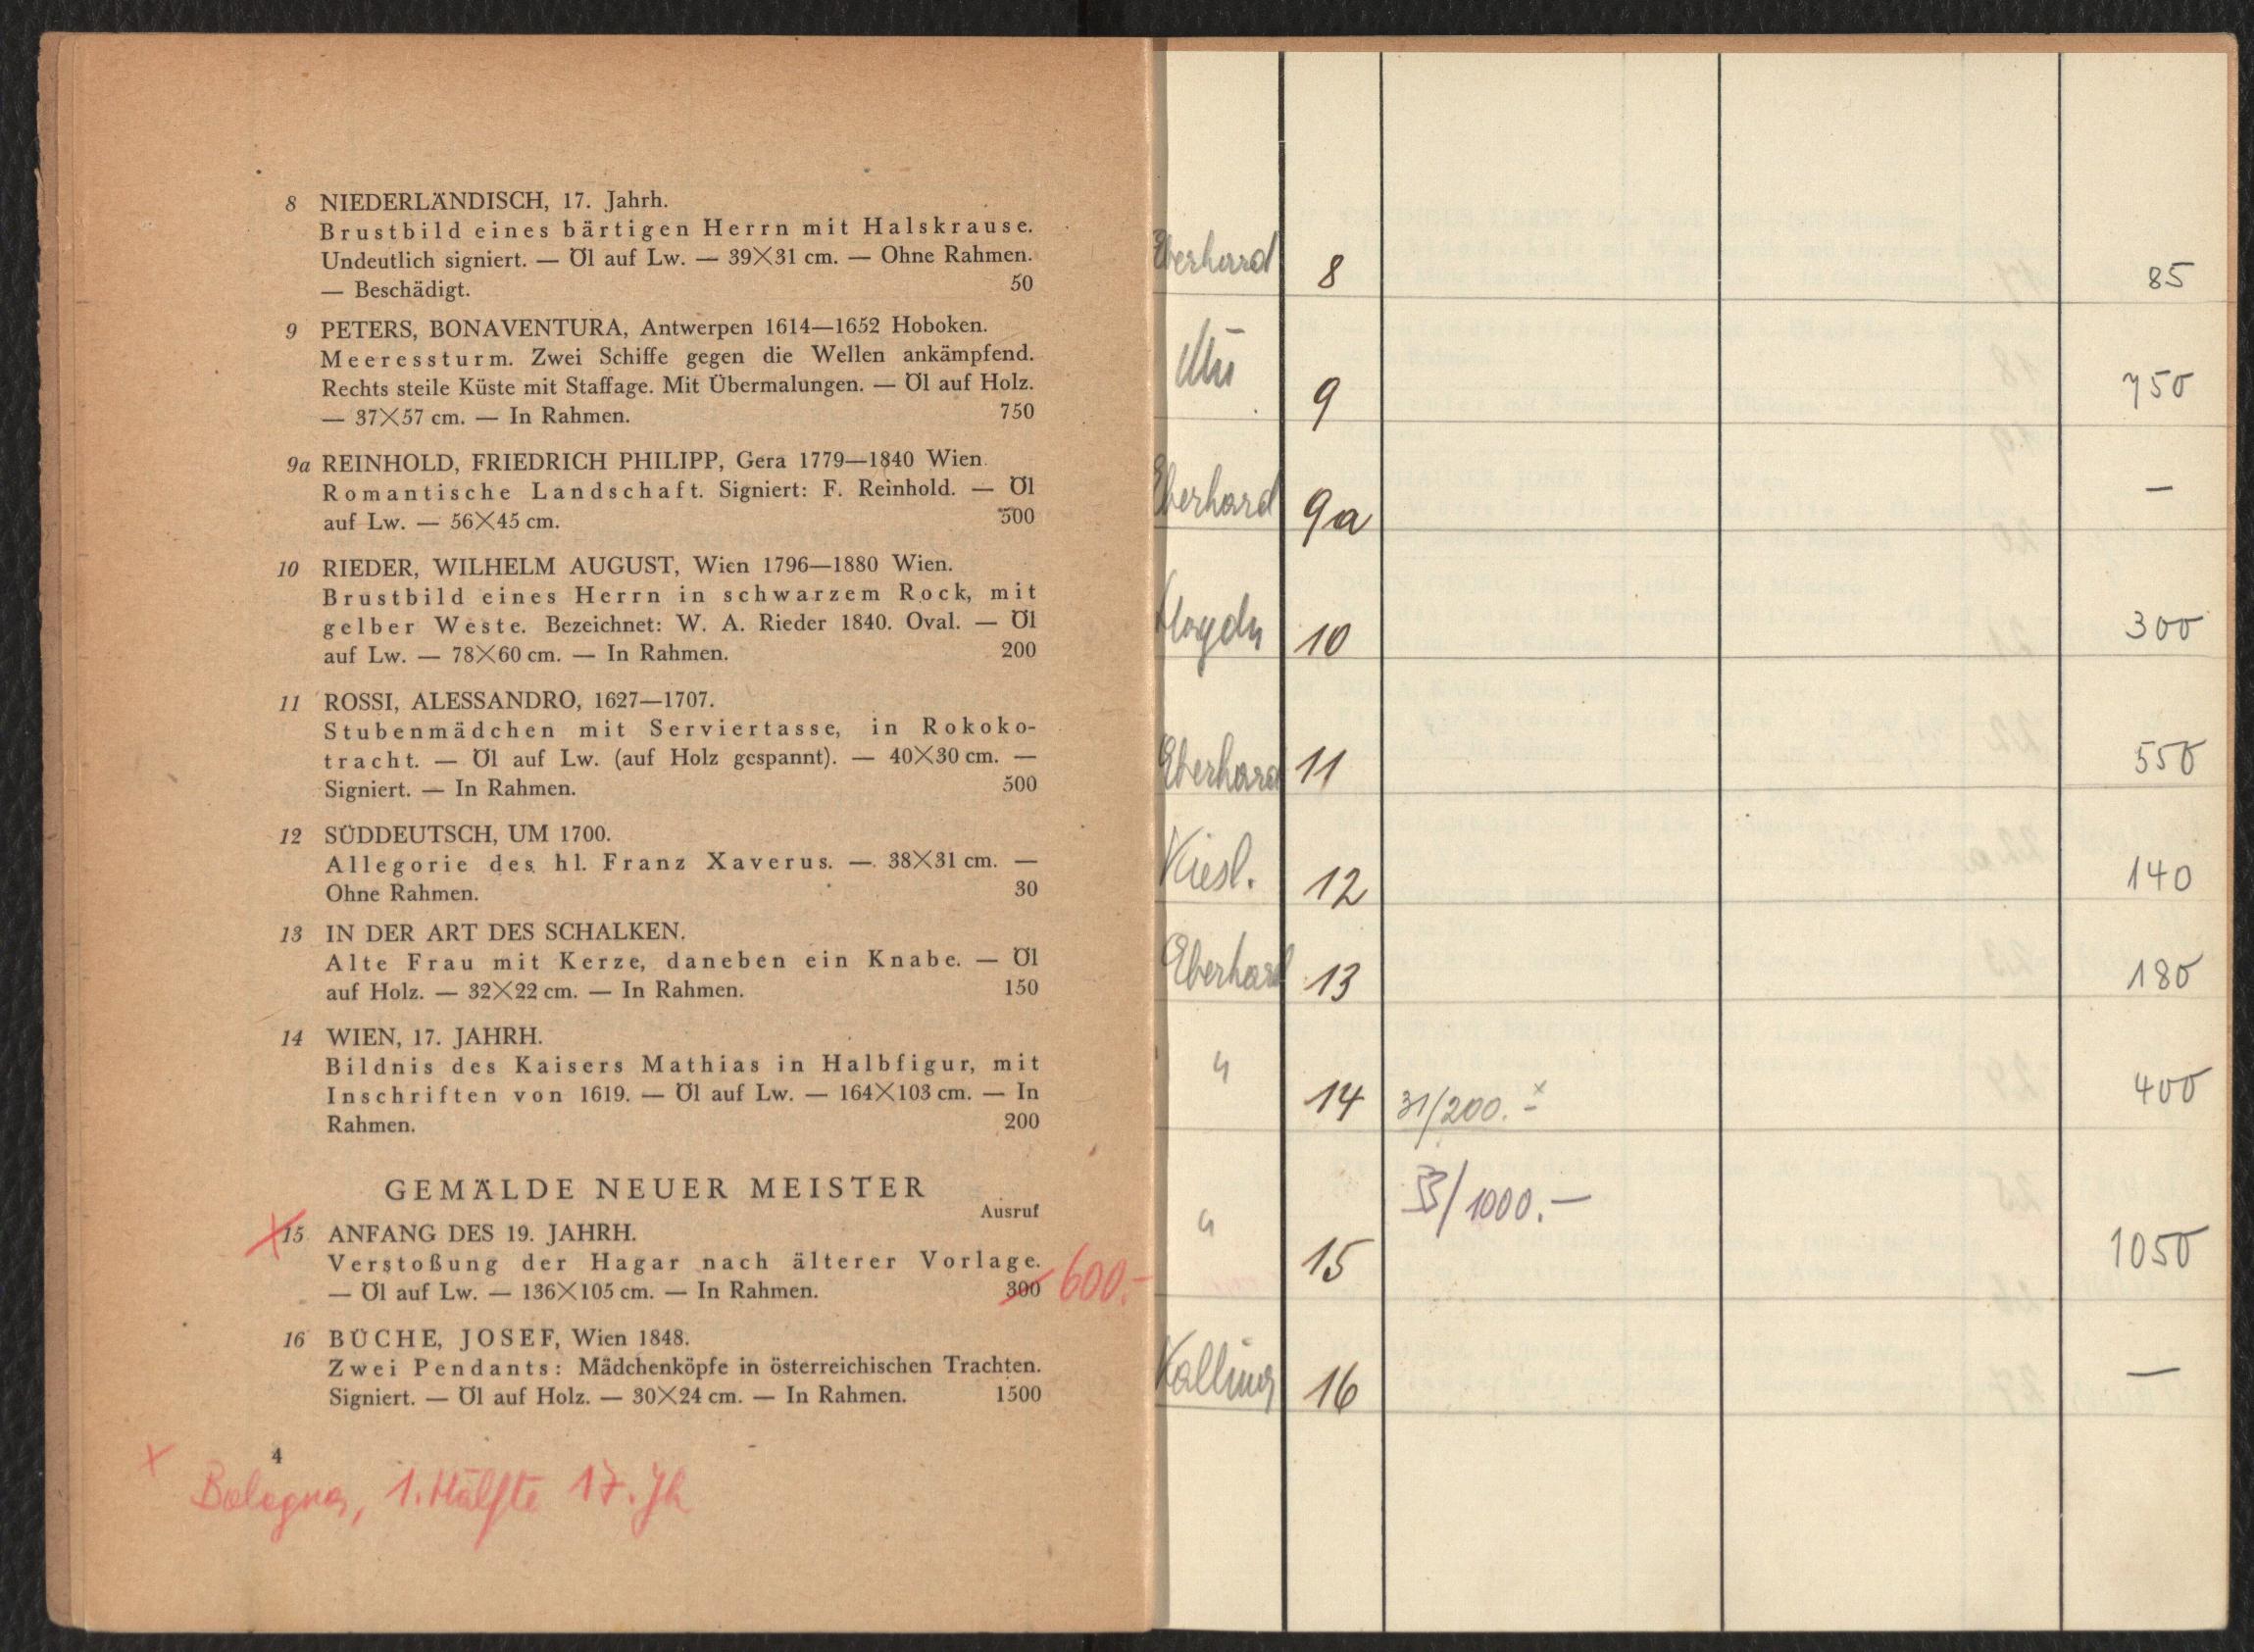 8 NIEDERLÄNDISCH, 17. Jahrh.
Brustbild eines bärtigen Herrn mit Halskrause.
Undeutlich signiert. — Öl auf Lw. — 39×31 cm. — Ohne Rahmen.
— Beschädigt. 50
9 PETERS, BONAVENTURA, Antwerpen 1614—1652 Hoboken.
Meeressturm. Zwei Schiffe gegen die Wellen ankämpfend.
Rechts steile Küste mit Staffage. Mit Übermalungen. — Öl auf Holz.
— 37×57 cm. — In Rahmen. 750
9a REINHOLD, FRIEDRICH PHILIPP, Gera 1779—1840 Wien.
Romantische Landschaft. Signiert: F. Reinhold. — Öl
auf Lw. — 56×45 cm. 500
10 RIEDER, WILHELM AUGUST, Wien 1796—1880 Wien.
Brustbild eines Herrn in schwarzem Rock, mit
gelber Weste. Bezeichnet: W. A. Rieder 1840. Oval. — Öl
auf Lw. — 78×60 cm. — In Rahmen. 200
11 ROSSI, ALESSANDRO, 1627—1707.
Stubenmädchen mit Serviertasse, in Rokoko-
tracht. — Öl auf Lw. (auf Holz gespannt). — 40×30 cm. —
Signiert. — In Rahmen. 500
12 SÜDDEUTSCH, UM 1700.
Allegorie des hl. Franz Xaverus. — 38×31 cm. —
Ohne Rahmen. 30
13 IN DER ART DES SCHALKEN.
Alte Frau mit Kerze, daneben ein Knabe. — Öl
auf Holz. — 32×22 cm. — In Rahmen. 150
14 WIEN, 17. JAHRH.
Bildnis des Kaisers Mathias in Halbfigur, mit
Inschriften von 1619. — Öl auf Lw. — 164×103 cm. — In
Rahmen. 200
GEMÄLDE NEUER MEISTER
Ausruf
15 ANFANG DES 19. JAHRH.
Verstoßung der Hagar nach älterer Vorlage.
— Öl auf Lw. — 136×105 cm. — In Rahmen. 300 600.-
16 BÜCHE, JOSEF, Wien 1848.
Zwei Pendants: Mädchenköpfe in österreichischen Trachten.
Signiert. — Öl auf Holz. — 30×24 cm. — In Rahmen. 1500
4
x Bologna, 1. Hälfte 17. Jh
Eberhard 8 85
9 750
Eberhard 9a —
10 300
Eberhard 11 550
Kiesl. 12 140
Eberhard 13 180
" 14 31/200.- x 400
" 15 33/1000.— 1050
16 —